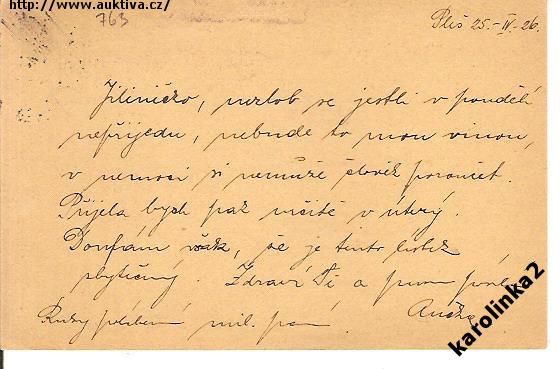 http://www.auktiva.cz/
763
Pliš 25.-IV.-26.
Jiřinečko, nezlob se jestli v pondělí
nepřijedu, nebude to mou vinou,
v nemoci si nemůže člověk poroučet.
Přijela bych pak určitě v úterý.
Doufám však, že je tento lístek
zbytečný. Zdraví Tě a
Anežka
Ruku políbení mil. paní.
karolinka2